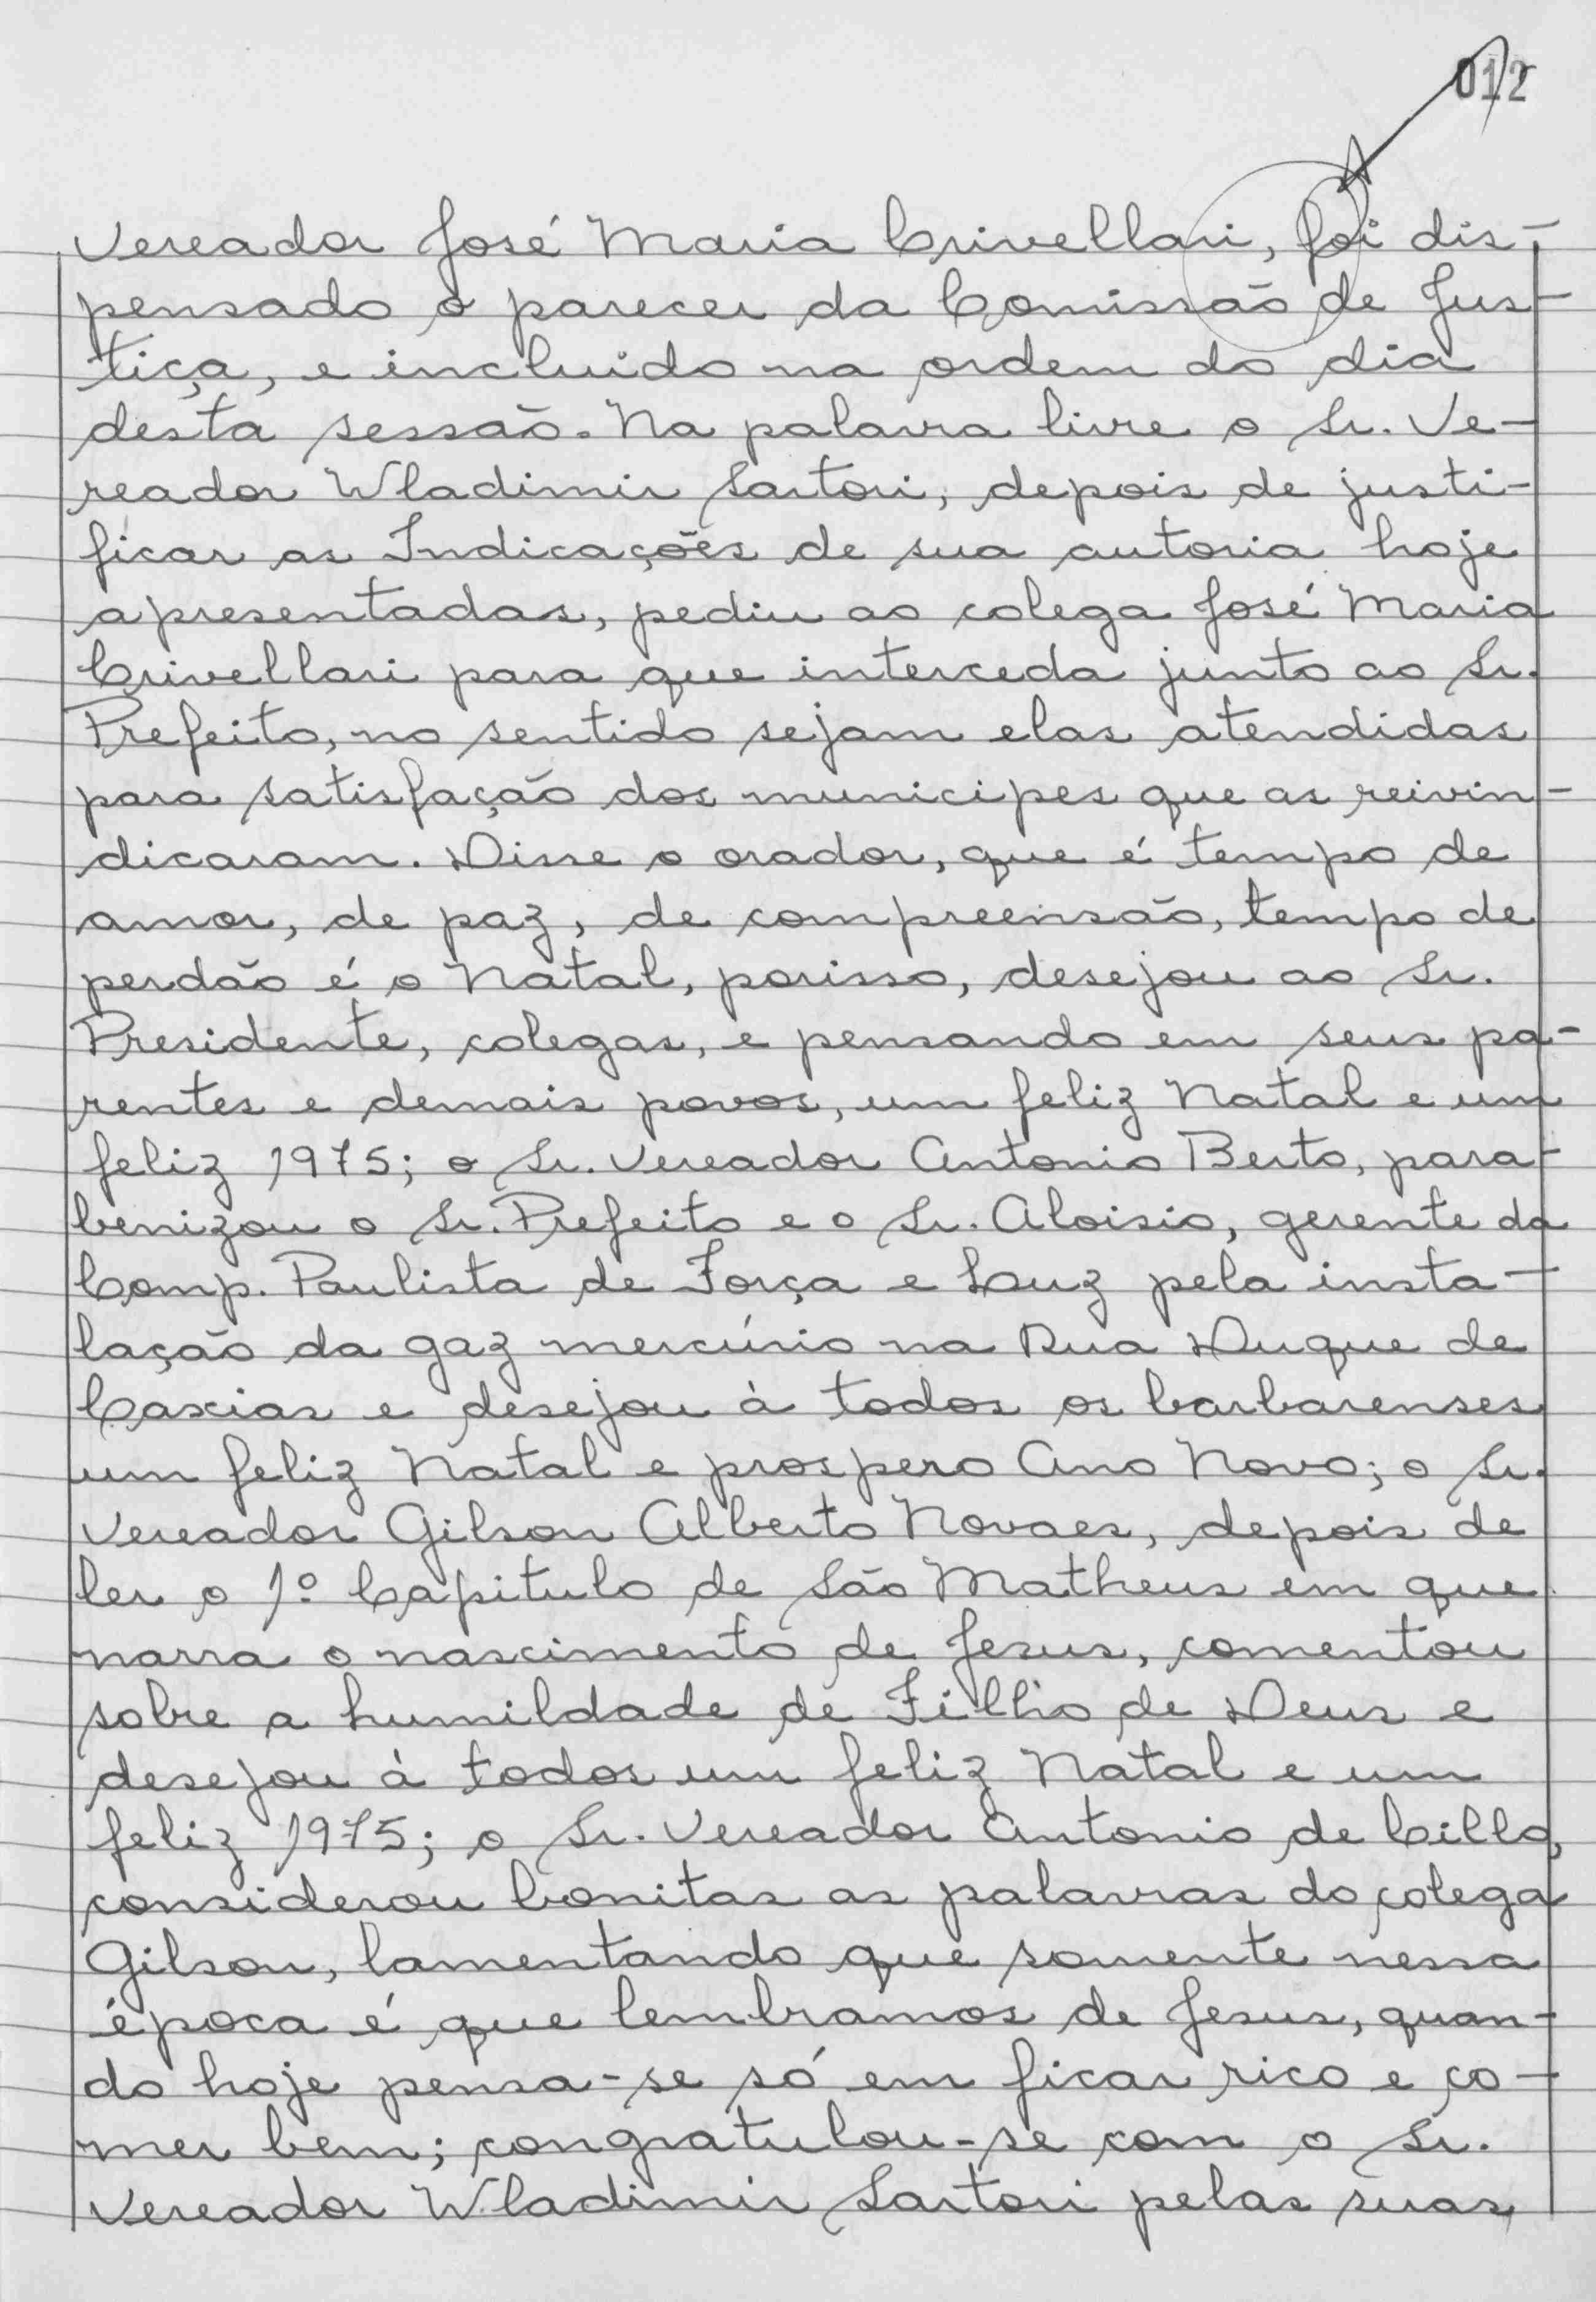 012
Vereador José Maria Crivellari, foi dis-
pensado o parecer da Comissão de Jus-
tiça, e incluido na ordem do dia
desta sessão. Na palavra livre o Sr. Ve-
reador Wladimir Sartori, depois de justi-
ficar as Indicações de sua autoria hoje
apresentadas, pediu ao colega José Maria
Crivellari para que interceda junto ao Sr.
Prefeito, no sentido sejam elas atendidas
para satisfação dos municipes que as reivin-
dicaram. Disse o orador, que é tempo de
amor, de paz, de compreensão, tempo de
perdão é o Natal, porisso, desejou ao Sr.
Presidente, colegas, e pensando em seus pa-
rentes e demais povos, um feliz Natal e um
feliz 1975; o Sr. Vereador Antonio Berto, para-
benizou o Sr. Prefeito e o Sr. Aloisio, gerente da
Comp. Paulista de Força e Luz pela insta-
lação da gaz mercúrio na Rua Duque de
Caxias e desejou à todos os barbarenses
um feliz Natal e prospero Ano Novo; o Sr.
Vereador Gilson Alberto Novaes, depois de
ler o 1º Capitulo de São Matheus em que
narra o nascimento de Jesus, comentou
sobre a humildade de Filho de Deus e
desejou à todos um feliz Natal e um
feliz 1975; o Sr. Vereador Antonio de Cillo,
considerou bonitas as palavras do colega
Gilson, lamentando que somente nessa
época é que lembramos de Jesus, quan-
do hoje pensa-se só em ficar rico e co-
mer bem; congratulou-se com o Sr.
Vereador Wladimir Sartori pelas suas